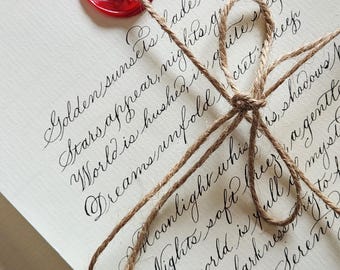 Golden sunsets fade
Stars appear, nights
World is hushed, in quite
Dreams unfold, secret, deep
Moonlight whispers, shadows
Nights soft breeze, a gentle
World is full of myst
darkness
Sereni